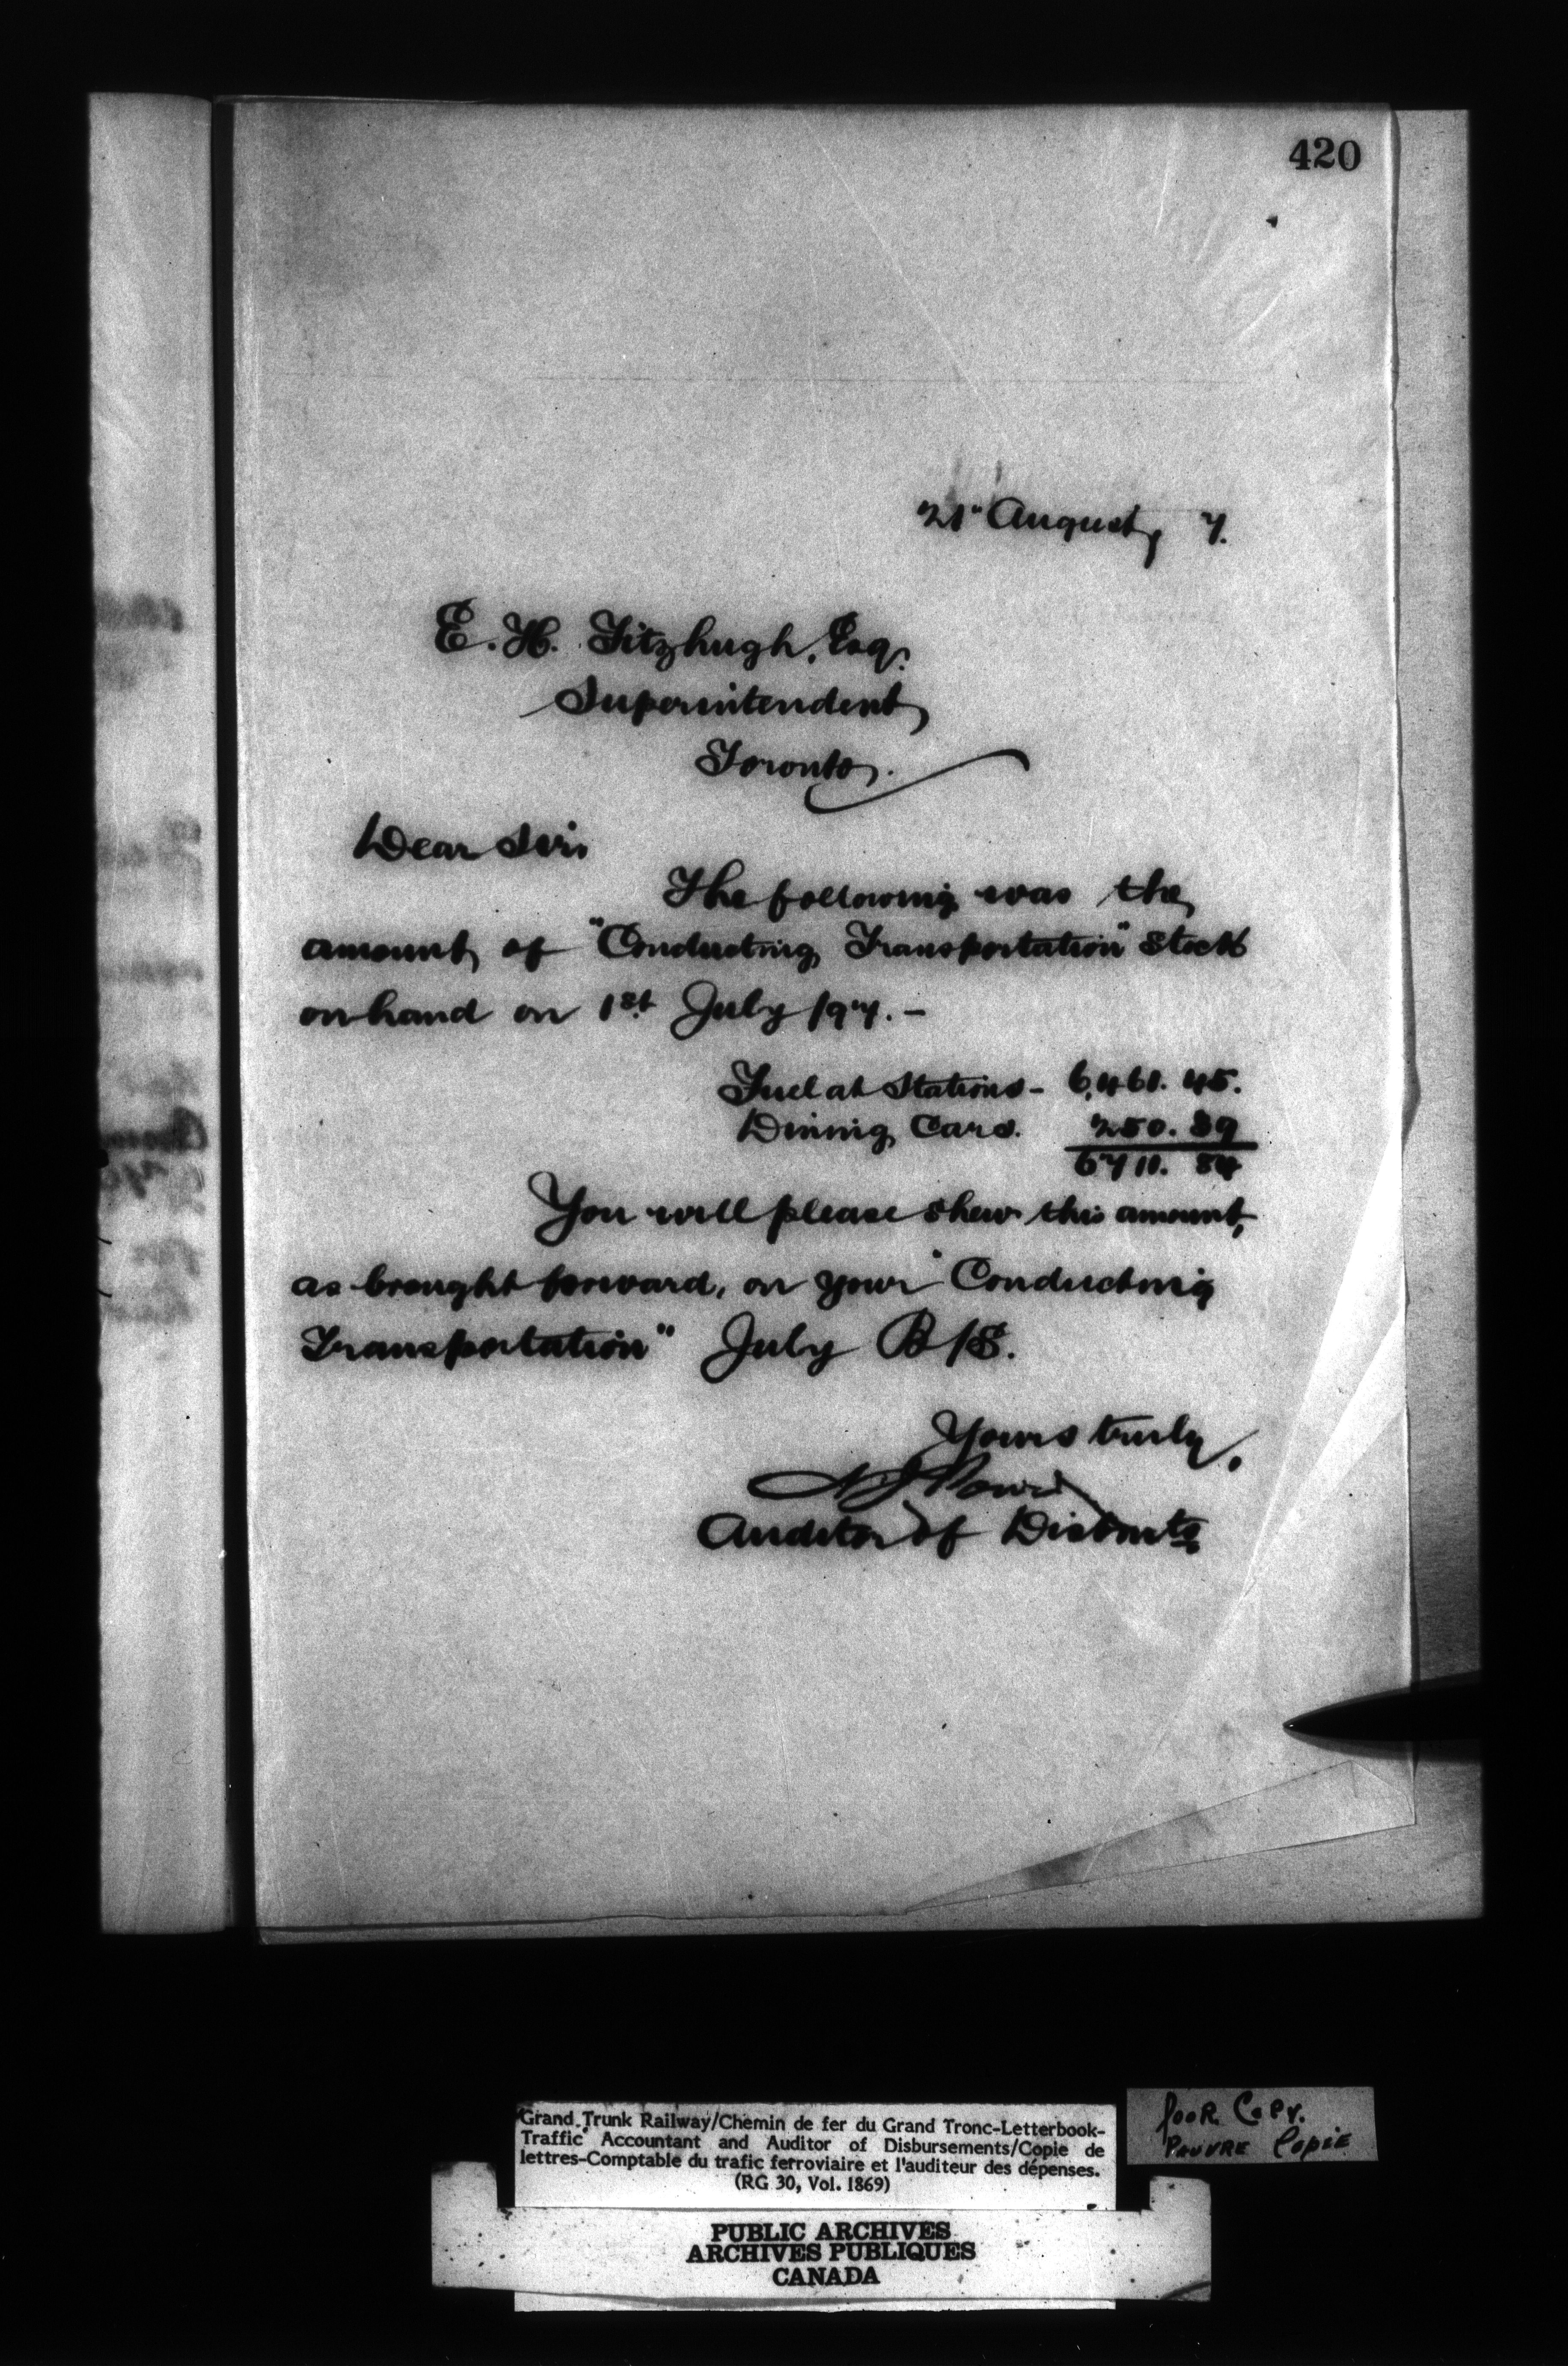 420
21st August, 7.
E. H. Fitzhugh, Esq.
Superintendent
Toronto.
Dear Sir,
The following was the
amount of "Conducting Transportation" stock
on hand on 1st July 197. -
Fuel at Stations - 6,461. 45.
Dining Cars. 250. 39
6711. 84
You will please shew this amount,
as brought forward, on your "Conducting
Transportation" July B/S.
Yours truly,
Auditor of Disbmts
Grand Trunk Railway/Chemin de fer du Grand Tronc-Letterbook-
Traffic Accountant and Auditor of Disbursements/Copie de
lettres-Comptable du trafic ferroviaire et l'auditeur des dépenses.
(RG 30, Vol. 1869)
Poor Copy.
Pauvre Copie
PUBLIC ARCHIVES
ARCHIVES PUBLIQUES
CANADA